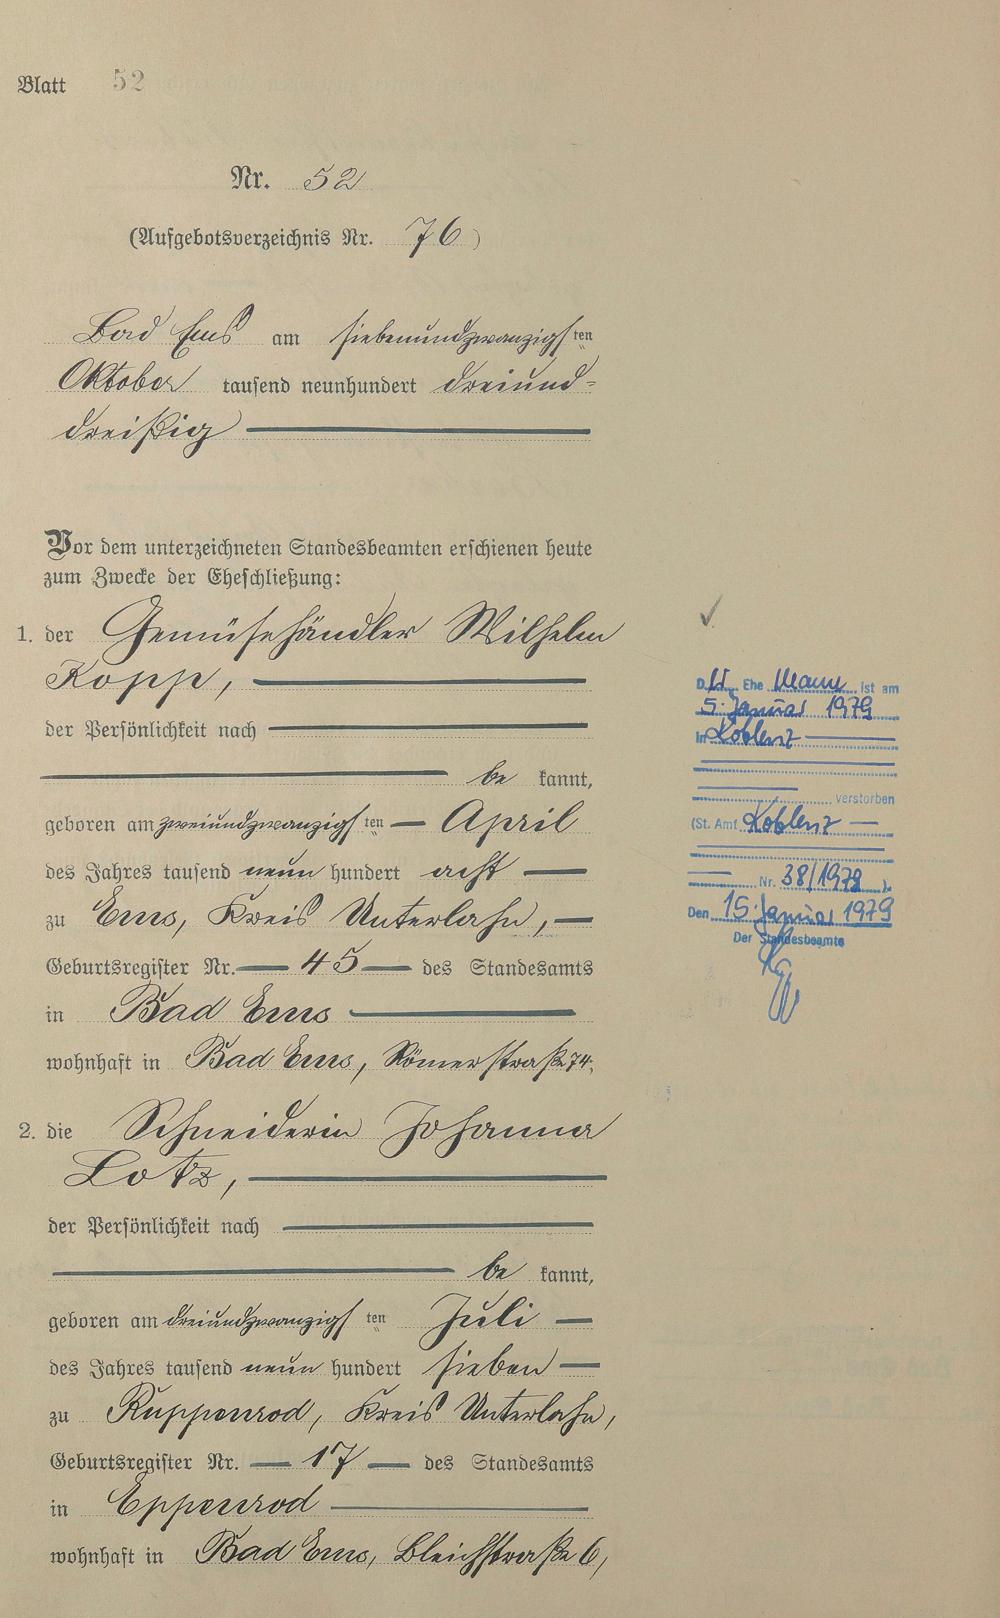 Blatt 52
Nr. 52
(Aufgebotsverzeichnis Nr. 76)
Bad Ems am siebenundzwanzigsten
Oktober tausend neunhundert dreiund-
dreißig
Vor dem unterzeichneten Standesbeamten erschienen heute
zum Zwecke der Eheschließung:
1. der Gemüsehändler Wilhelm
Kopp,
der Persönlichkeit nach
be kannt,
geboren am zweiundzwanzigsten April
des Jahres tausend neun hundert acht
zu Ems, Kreis Unterlahn,
Geburtsregister Nr. 45 des Standesamts
in Bad Ems
wohnhaft in Bad Ems, Römerstraße 74.
2. die Schneiderin Johanna
Lotz,
der Persönlichkeit nach
be kannt,
geboren am dreiundzwanzigsten Juli
des Jahres tausend neun hundert sieben
zu Ruppenrod, Kreis Unterlahn,
Geburtsregister Nr. 17 des Standesamts
in Eppenrod
wohnhaft in Bad Ems, Bleichstraße 6,
Der Ehe Mann ist am
5. Januar 1979
in Koblenz
verstorben
(St. Amt Koblenz
Nr. 38/1979 ).
Den 15. Januar 1979
Der Standesbeamte